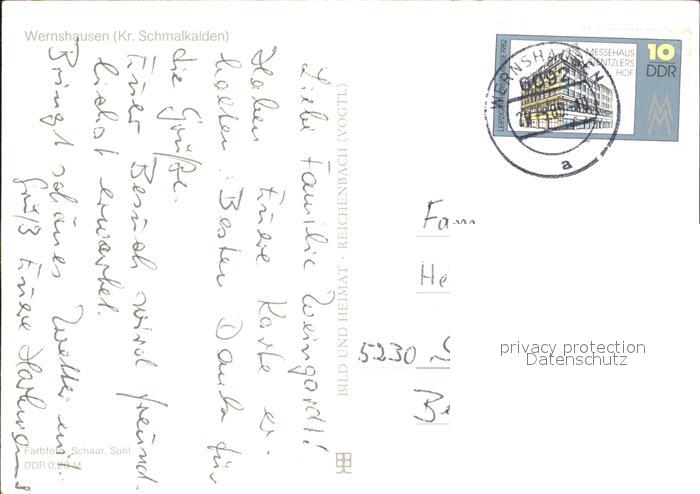 Wernshausen (Kr. Schmalkalden)
Liebe Familie Weingardt!
Haben Euere Karte er-
halten. Besten Dank für
die Grüße.
Euer Besuch wird freund-
lichst erwartet.
Bringt schönes Wetter mit.
Grüß Euere Hartmanns
Farbfoto: Schaar, Suhl
DDR 0,20 M
BILD UND HEIMAT · REICHENBACH (VOGTL)
LEIPZIGER 1982
MESSEHAUS
HOF
10
DDR
WERNSHAUSEN
a
Fam
He
5230
privacy protection
Datenschutz